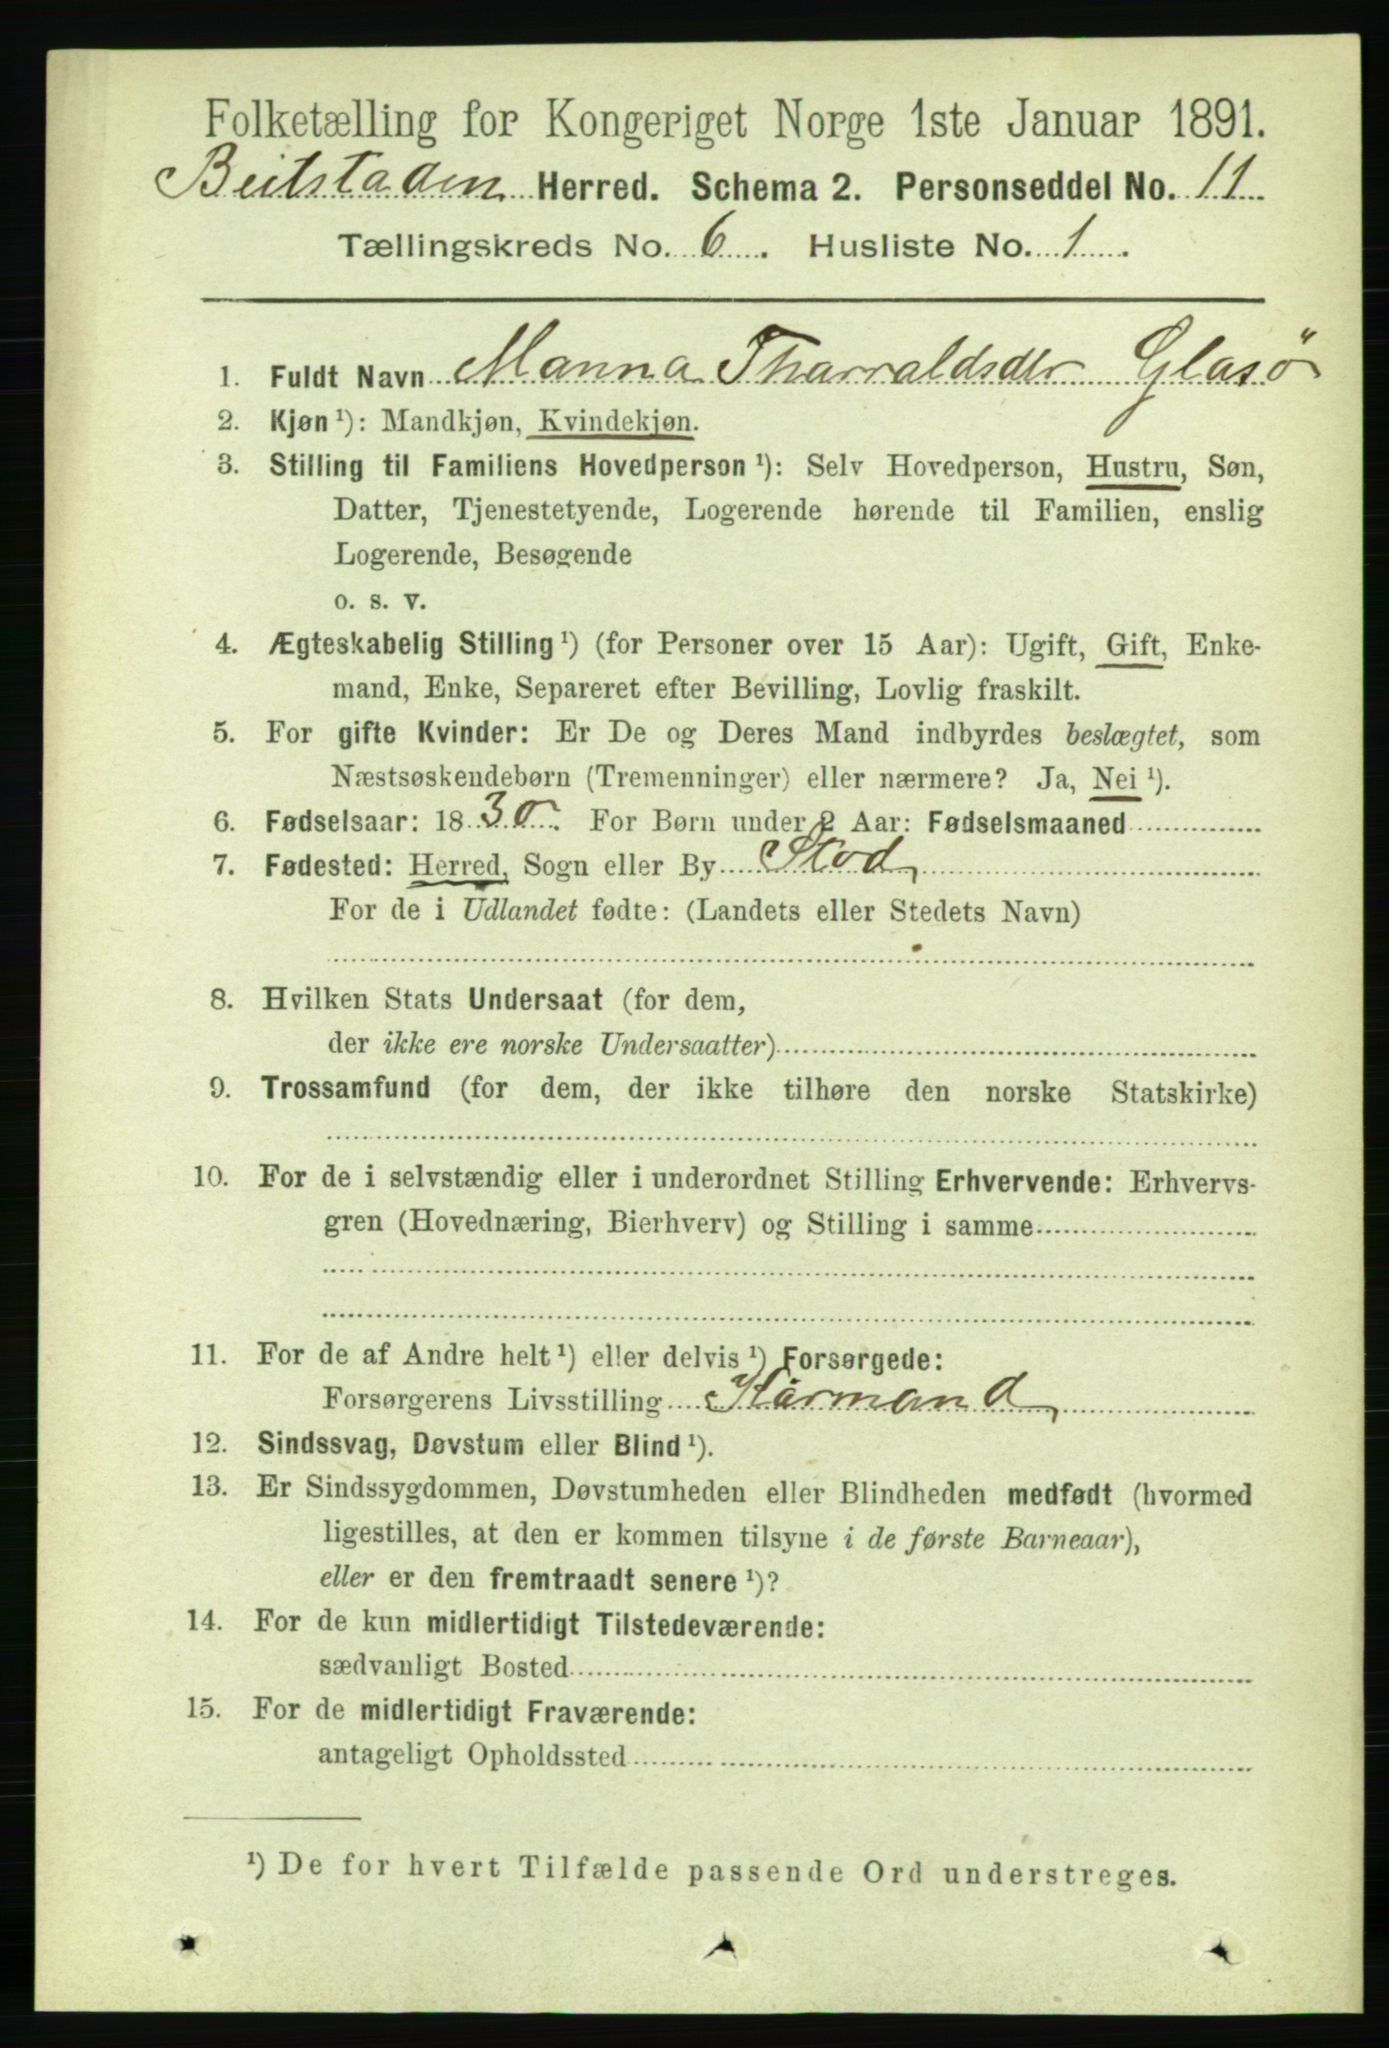 Folketælling for Kongeriget Norge 1ste Januar 1891.
Beitstaden Herred. Schema 2. Personseddel No. 11
Tællingskreds No. 6. Husliste No. 1.
1. Fuldt Navn Manna Tharraldsdtr Glasö
2. Kjøn ¹): Mandkjøn, Kvindekjøn.
3. Stilling til Familiens Hovedperson ¹): Selv Hovedperson, Hustru, Søn,
Datter, Tjenestetyende, Logerende hørende til Familien, enslig
Logerende, Besøgende
o. s. v.
4. Ægteskabelig Stilling ¹) (for Personer over 15 Aar): Ugift, Gift, Enke-
mand, Enke, Separeret efter Bevilling, Lovlig fraskilt.
5. For gifte Kvinder: Er De og Deres Mand indbyrdes beslægtet, som
Næstsøskendebørn (Tremenninger) eller nærmere? Ja, Nei ¹).
6. Fødselsaar: 1830. For Børn under 2 Aar: Fødselsmaaned
7. Fødested: Herred, Sogn eller By Stod
For de i Udlandet fødte: (Landets eller Stedets Navn)
8. Hvilken Stats Undersaat (for dem,
der ikke ere norske Undersaatter)
9. Trossamfund (for dem, der ikke tilhøre den norske Statskirke)
10. For de i selvstændig eller i underordnet Stilling Erhvervende: Erhvervs-
gren (Hovednæring, Bierhverv) og Stilling i samme
11. For de af Andre helt ¹) eller delvis ¹) Forsørgede:
Forsørgerens Livsstilling Kårmand
12. Sindssvag, Døvstum eller Blind ¹).
13. Er Sindssygdommen, Døvstumheden eller Blindheden medfødt (hvormed
ligestilles, at den er kommen tilsyne i de første Barneaar),
eller er den fremtraadt senere ¹)?
14. For de kun midlertidigt Tilstedeværende:
sædvanligt Bosted
15. For de midlertidigt Fraværende:
antageligt Opholdssted
¹) De for hvert Tilfælde passende Ord understreges.